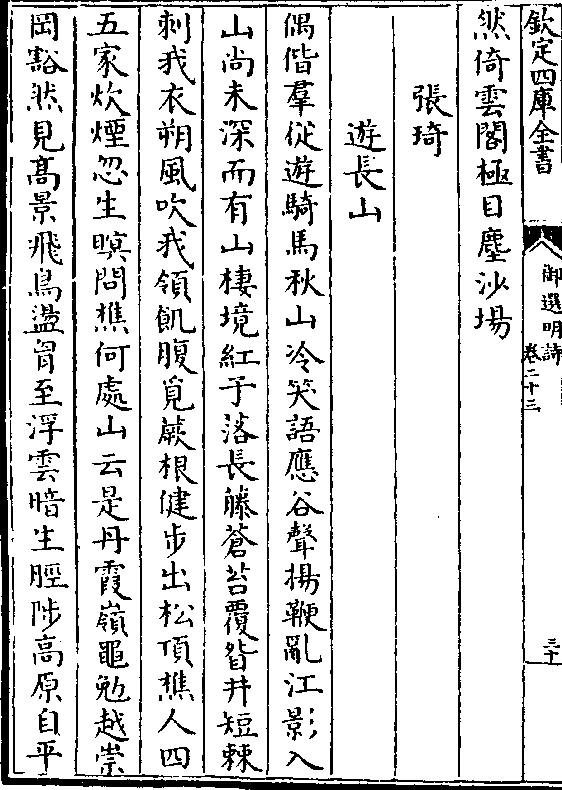 欽定四庫全書
御選明詩
卷二十三
三十
然倚雲閣極目塵沙場
張琦
遊長山
偶偕羣從遊騎馬秋山冷笑語應谷聲揚鞭亂江影入
山尚未深而有山棲境紅子落長藤蒼苔覆眢井短棘
刺我衣朔風吹我領飢腹覓蕨根健步出松頂樵人四
五家炊煙忽生暝問樵何處山云是丹霞嶺黽勉越崇
岡豁然見髙景飛鳥盪胷至浮雲暗生脛陟高原自平